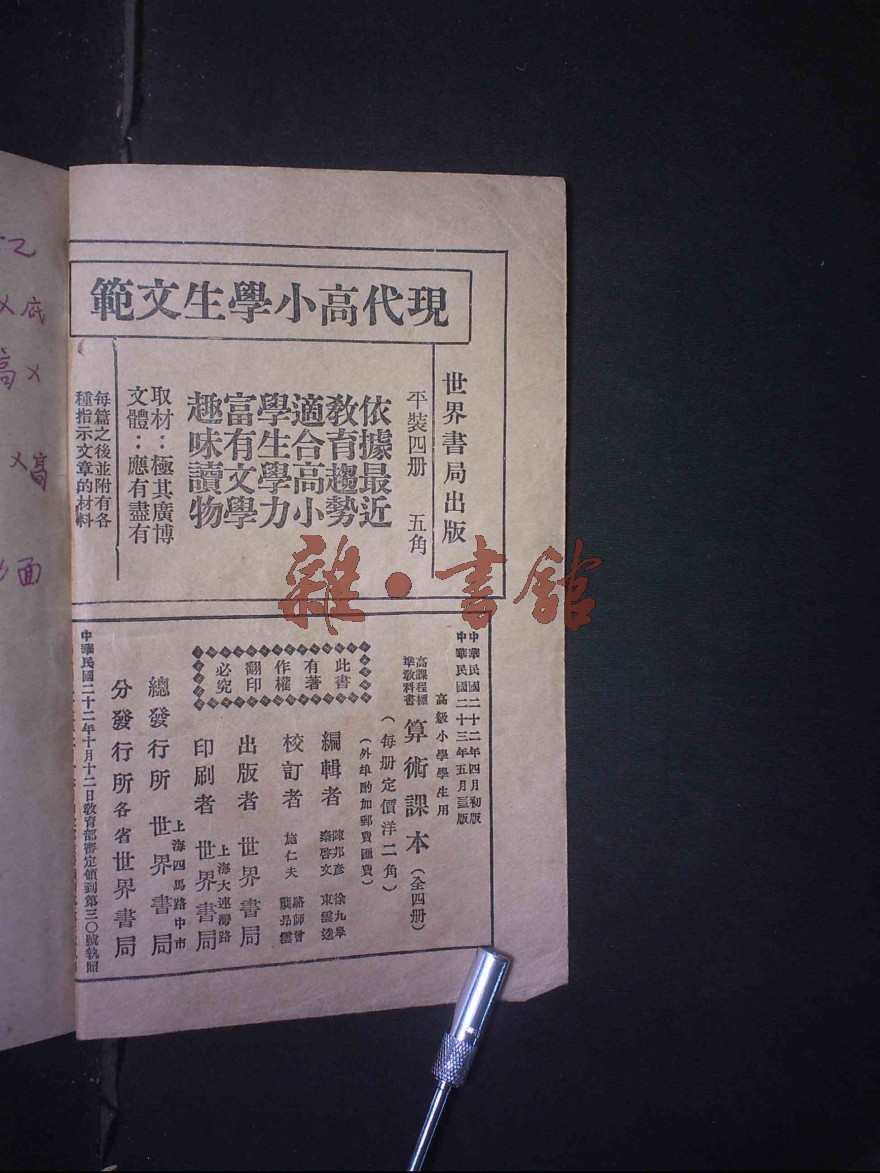 現代高小學生文範
世界書局出版
平裝四册 五角
依據最近
教育趨勢
適合高小
學生學力
富有文學
趣味讀物
取材：極其廣博
文體：應有盡有
每篇之後並附有各
種指示文章的材料
中華民國二十二年四月初版
中華民國二十三年五月
高級小學學生用
高課程標準教科書 算術課本（全四册）
（每册定價洋二角）
（外埠酌加郵費匯費）
此書
有著
作權
翻印
必究
編輯者 陳邦彥 徐九皐 秦啓文 東雲逵
校訂者 施仁夫 駱師曾
出版者 世界書局
印刷者 上海大連灣路 世界書局
總發行所 上海四馬路中市 世界書局
分發行所 各省世界書局
中華民國二十二年十月十二日教育部審定領到第三〇號執照
雜·書館
乙
乂底
高乂
乂高
面